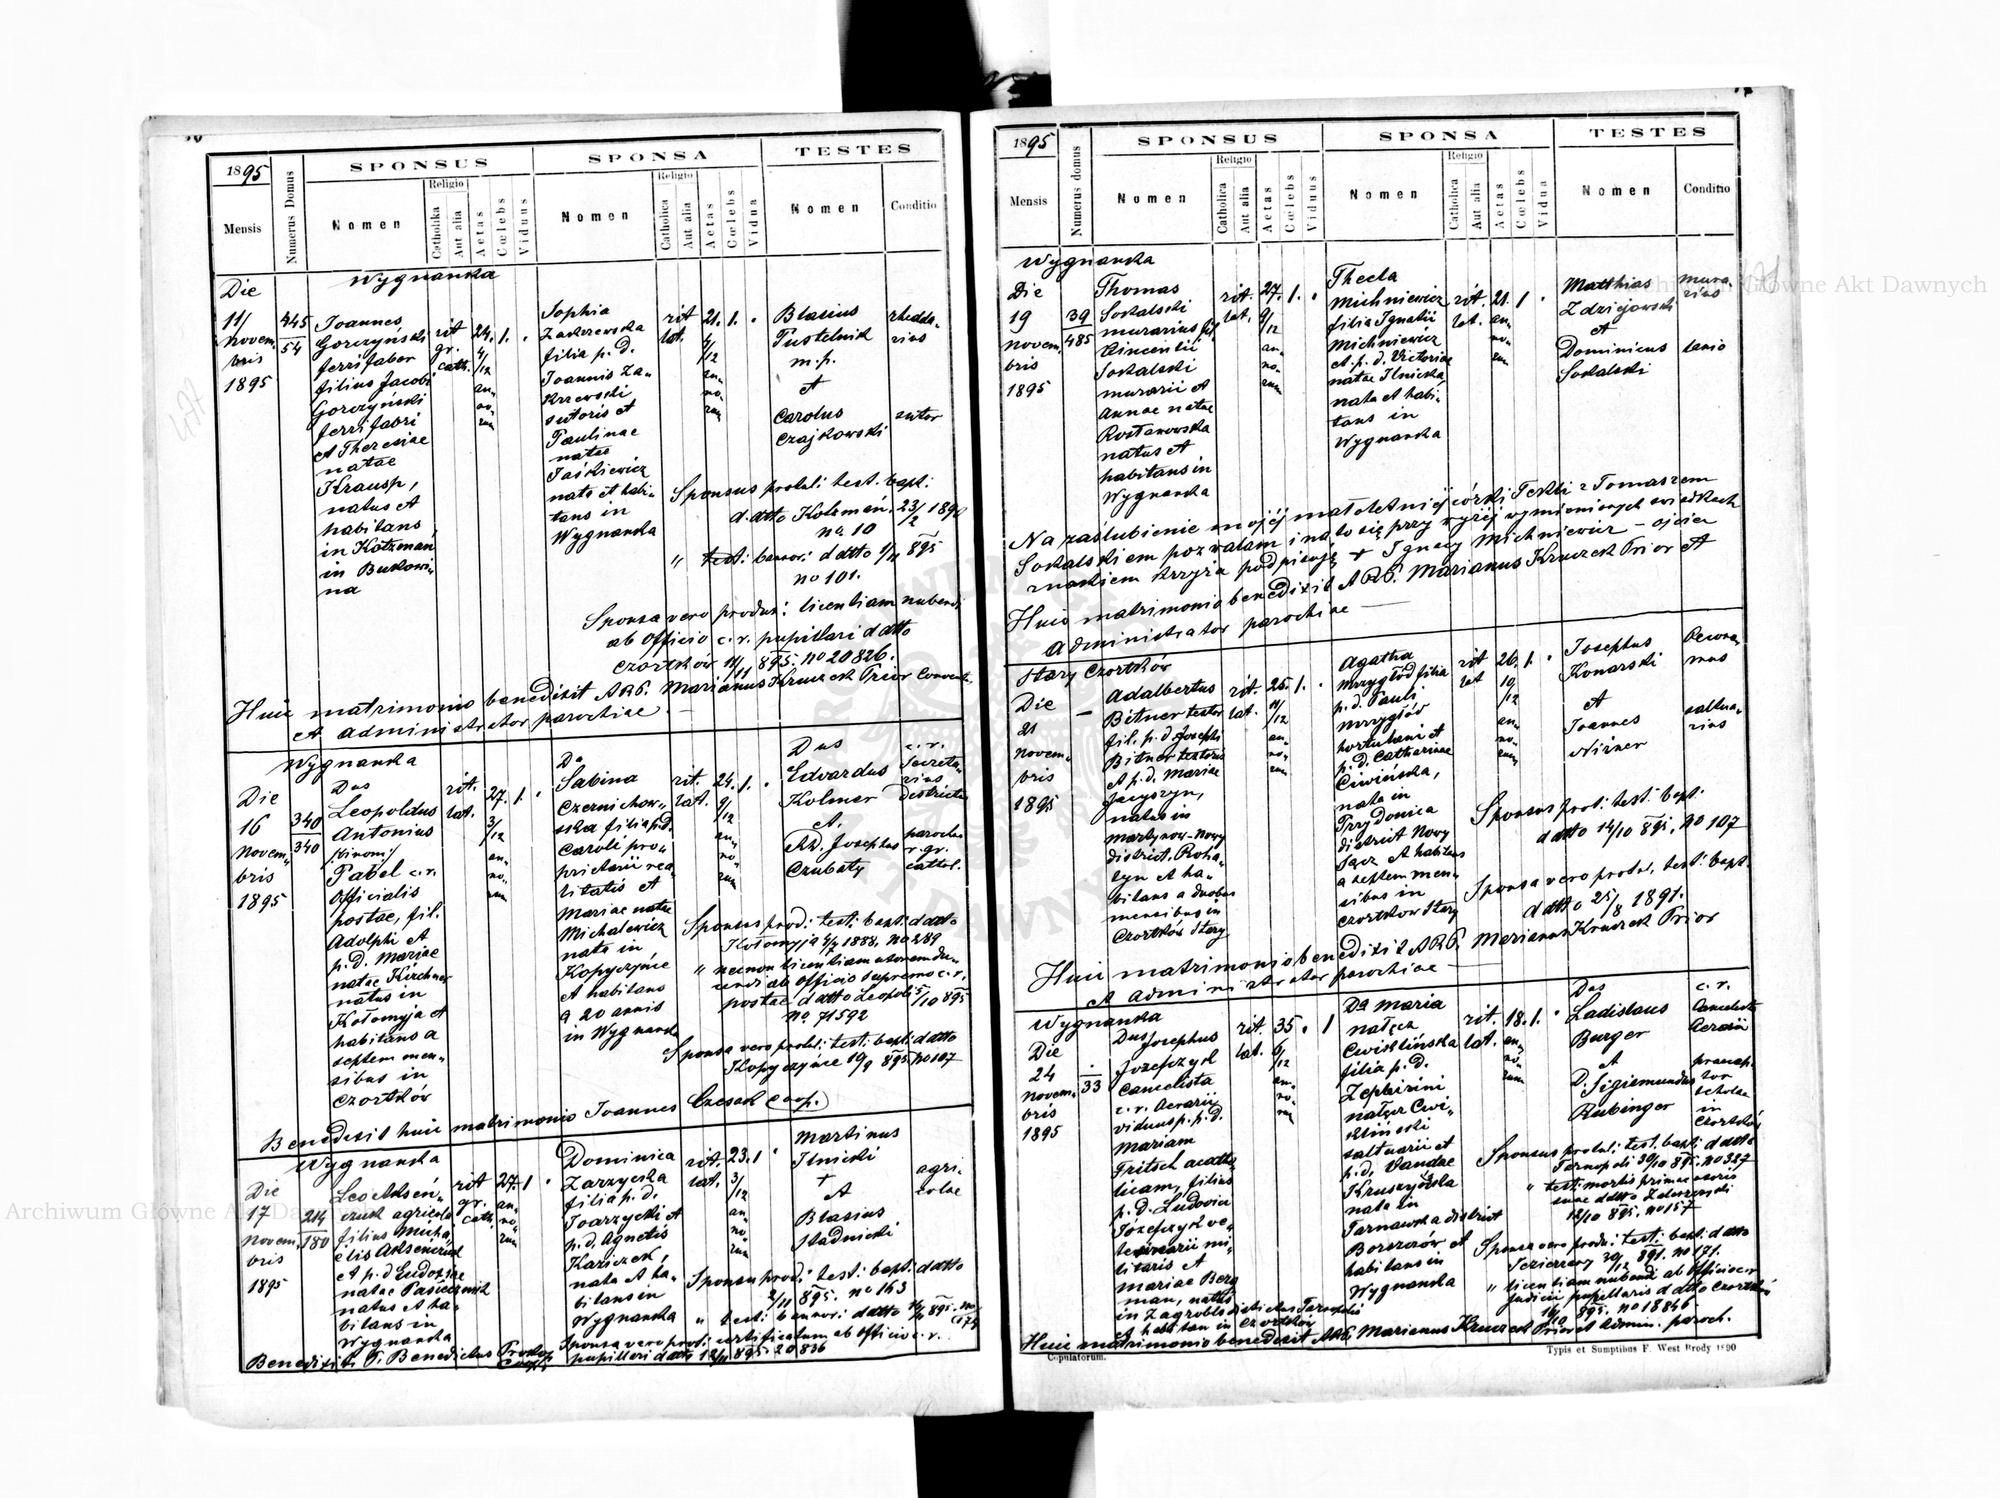 1895
SPONSUS
SPONSA
TESTES
Mensis
Numerus Domus
Nomen
Religio
Catholika
Aut alia
Aetas
Cœlebs
Viduus
Nomen
Religio
Catholica
Aut alia
Aetas
Cœlebs
Vidua
Nomen
Conditio
Wygnanka
Die
11/
Novem,
bris
1895
345
54
Joannes
Gorczyński
ferri faber
filius Jacobi
Gorczyński
ferri fabri
et Theresiae
natae
Krausp,
natus et
habitans
in Kotzman
in Bukowi-
na
rit
gr.
cath.
24.
4/12
an-
no-
rum
1.
Sophia
Zakrzewska
filia p. d.
Joannis Za-
krzewski
sutoris et
Paulinae
natae
Jaśkiewicz
nata et habi-
tans in
Wygnanka
rit
lat.
21.
4/12
an-
no-
rum
1.
Blasius
Pustelnik
m. p.
et
Carolus
Czajkowski
rheda-
rius
sutor
Sponsus produ: test. bapt:
d. dtto Kotzman 23/2 189
no 10
" test: bannor: d dtto 1/11 895
no 101.
Sponsa vero produx: licentiam nubendi
ab Officio c. r. pupillari d dtto
Czortków 11/11 895. no 20826.
Huic matrimonio benedixit ARP. Marianus Kruczek Prior Convent.
et administrator parochiae.
Wygnanka
Die
16
Novem,
bris
1895
340
340
Dus
Leopoldus
Antonius
/binom:/
Pabel c. r.
Officialis
postae, fil.
Adolphi et
p. d. Mariae
natae Kirchner
natus in
Kołomyja et
habitans a
septem men-
sibus in
Czortków
rit.
lat.
27.
3/12
an-
no-
rum
1.
Da
Sabina
Czernichow-
ska filia p. d.
Caroli pro-
prietarii rea-
litatis et
Mariae natae
Michalewicz
nata in
Kopyczyńce
et habitans
a 20 annis
in Wygnanka
rit.
lat.
24.
9/12
an-
no-
rum
1.
Dus
Edvardus
Kolmer
et.
RD. Josephus
Czubaty
c. r.
Secreta-
rius
districtus
parochus
r. gr.
cathol.
Sponsus prod: test: bapt: d dtto
Kołomyja 4/7 1888, no 289
" necnon licentiam uxorem du-
cendi ab Officio supremo c. r.
postae d dtto Leopoli 5/10 895
no. 71592
Sponsa vero produ: test: bapt: d dtto
Kopyczyńce 19/9 895. no 107
Benedixit huic matrimonio Joannes Czesak coop.
Wygnanka
Die
17
Novem,
bris
1895
214
180
Leo Aksen-
czuk agricola
filius Micha-
elis Aksenczuk
et p. d. Eudoxiae
natae Pasiecznik
natus et ha-
bitans in
Wygnanka
rit
gr.
cath.
27.
an-
no-
rum
1
Dominica
Zarzycka
filia p. d.
et
p. d. Agnetis
Kaziczek,
nata et ha-
bitans in
Wygnanka
rit.
lat.
23.
3/12
an-
no-
rum
1
Martinus
Ilnicki
+
et
Blasius
Stadnicki
agri-
colae
Sponsus prod: test: bapt: d dtto
2/11 895. no 163
" test: bannor: d dtto 16/11 895. no
Sponsa vero prod: certificatum ab officio c. r.
pupillari d dtto 12/11 895. 20836
Benedixit P. Benedictus Prokop
Coop.
1895
SPONSUS
SPONSA
TESTES
Mensis
Numerus domus
Nomen
Religio
Catholica
Aut alia
Aetas
Cœlebs
Viduus
Nomen
Religio
Catholica
Aut alia
Aetas
Cœlebs
Vidua
Nomen
Conditio
Wygnanka
Die
19
Novem,
bris
1895
39
485
Thomas
Sokalski
murarius fil.
Vincentii
Sokalski
murarii et
Annae natae
Rostanowska
natus et
habitans in
Wygnanka
rit.
lat.
27.
9/12
an-
no-
rum
1.
Thecla
Michniewicz
filia Ignatii
Michniewicz
et p. d. Victoriae
natae Ilnicka,
nata et habi-
tans in
Wygnanka
rit.
lat.
21.
an-
no-
rum
1
Matthias
Zdziejowski
et
Dominicus
Sokalski
mura-
rius
lanio
Na zaślubienie mojéj małoletniéj córki Tekli z Tomaszem
Sokalskim pozwalam i na to się przy wyżéj wymienionych świadkach
znakiem krzyża podpisuję + Ignacy Michniewicz - ojciec
Huic matrimonio benedixit ARP. Marianus Kruczek Prior et
administrator parochiae
Stary Czortków
Die
21
Novem-
bris
1895
Adalbertus
Bitner textor
fil. p. d. Josephi
Bitner textoris
et p. d. Mariae
Jacyszyn,
natus in
Martynow-Nowy
district. Roha-
tyn et ha-
bitans a duobus
mensibus in
Czortków Stary
rit.
lat.
25.
11/12
an-
no-
rum
1.
Agatha
Mrzygłód filia
p. d. Pauli
Mrzygłód
hortulani et
p. d. Catharinae
Ciwińska,
nata in
Przydonica
district Nowy
Sącz et habitans
a septem men-
sibus in
Czortkow Stary
rit
lat
26.
10/12
an-
no-
rum
1.
Josephus
Konarski
et
Joannes
Nizner
Oecono-
mus
saltua-
rius
Sponsus prod: test: bapt:
d dtto 14/10 895, no 107
Sponsa vero produ, test: bapt.
d dtto 25/8 1891.
Huic matrimonio benedixit ARP. Marianus Kruczek Prior
et administrator parochiae
Wygnanka
Die
24
Novem-
bris
1895
33
Dus Josephus
Józefczyk
Cancelista
c. r. Aerarii
viduus p. p. d.
Mariam
Gritsch acatho-
licam, filius
p. d. Ludovici
Józefczyk ve-
terinarii mi-
litaris et
Mariae Berg
man, natus
in Zagrobla districtus Tarnopolis
et habitan in Czortków
rit.
lat.
35.
6/12
an-
no-
rum
1
Da Maria
Nałęcz
Cwiklińska
filia p. d.
Zephirini
Nałęcz Cwi-
kliński
saltuarii et
p. d. Vandae
Kruszyńska
nata in
Tarnawka district
Borszczów et
habitans in
Wygnanka
rit.
lat.
18.
an-
no-
rum
1.
Dus
Ladislaus
Burger
et
D. Sigismundus
Rubinger
c. r.
Cancelista
Aerarii
praecep-
tor
scholae
in
Czortków
Sponsus produ: test: bapt: d dtto
Tarnopoli 30/10 895. no 327
" test: mortis primae uxoris
suae d dtto
18/10 895. no 157
Sponsa vero produ: test: bapt. d dtto
Jezierzany 30/12 891. no 171.
" licentiam nubendi ab Officio c. r.
Judicii pupillaris d dtto Czortków
16/10 895. no 18846
Huic matrimonio benedixit ARP. Marianus Kruczek Prior et Admin. paroch.
Copulatorum.
Typis et Sumptibus F. West Brody 1890
Archiwum Główne Akt Dawnych
Archiwum Główne Akt Dawnych